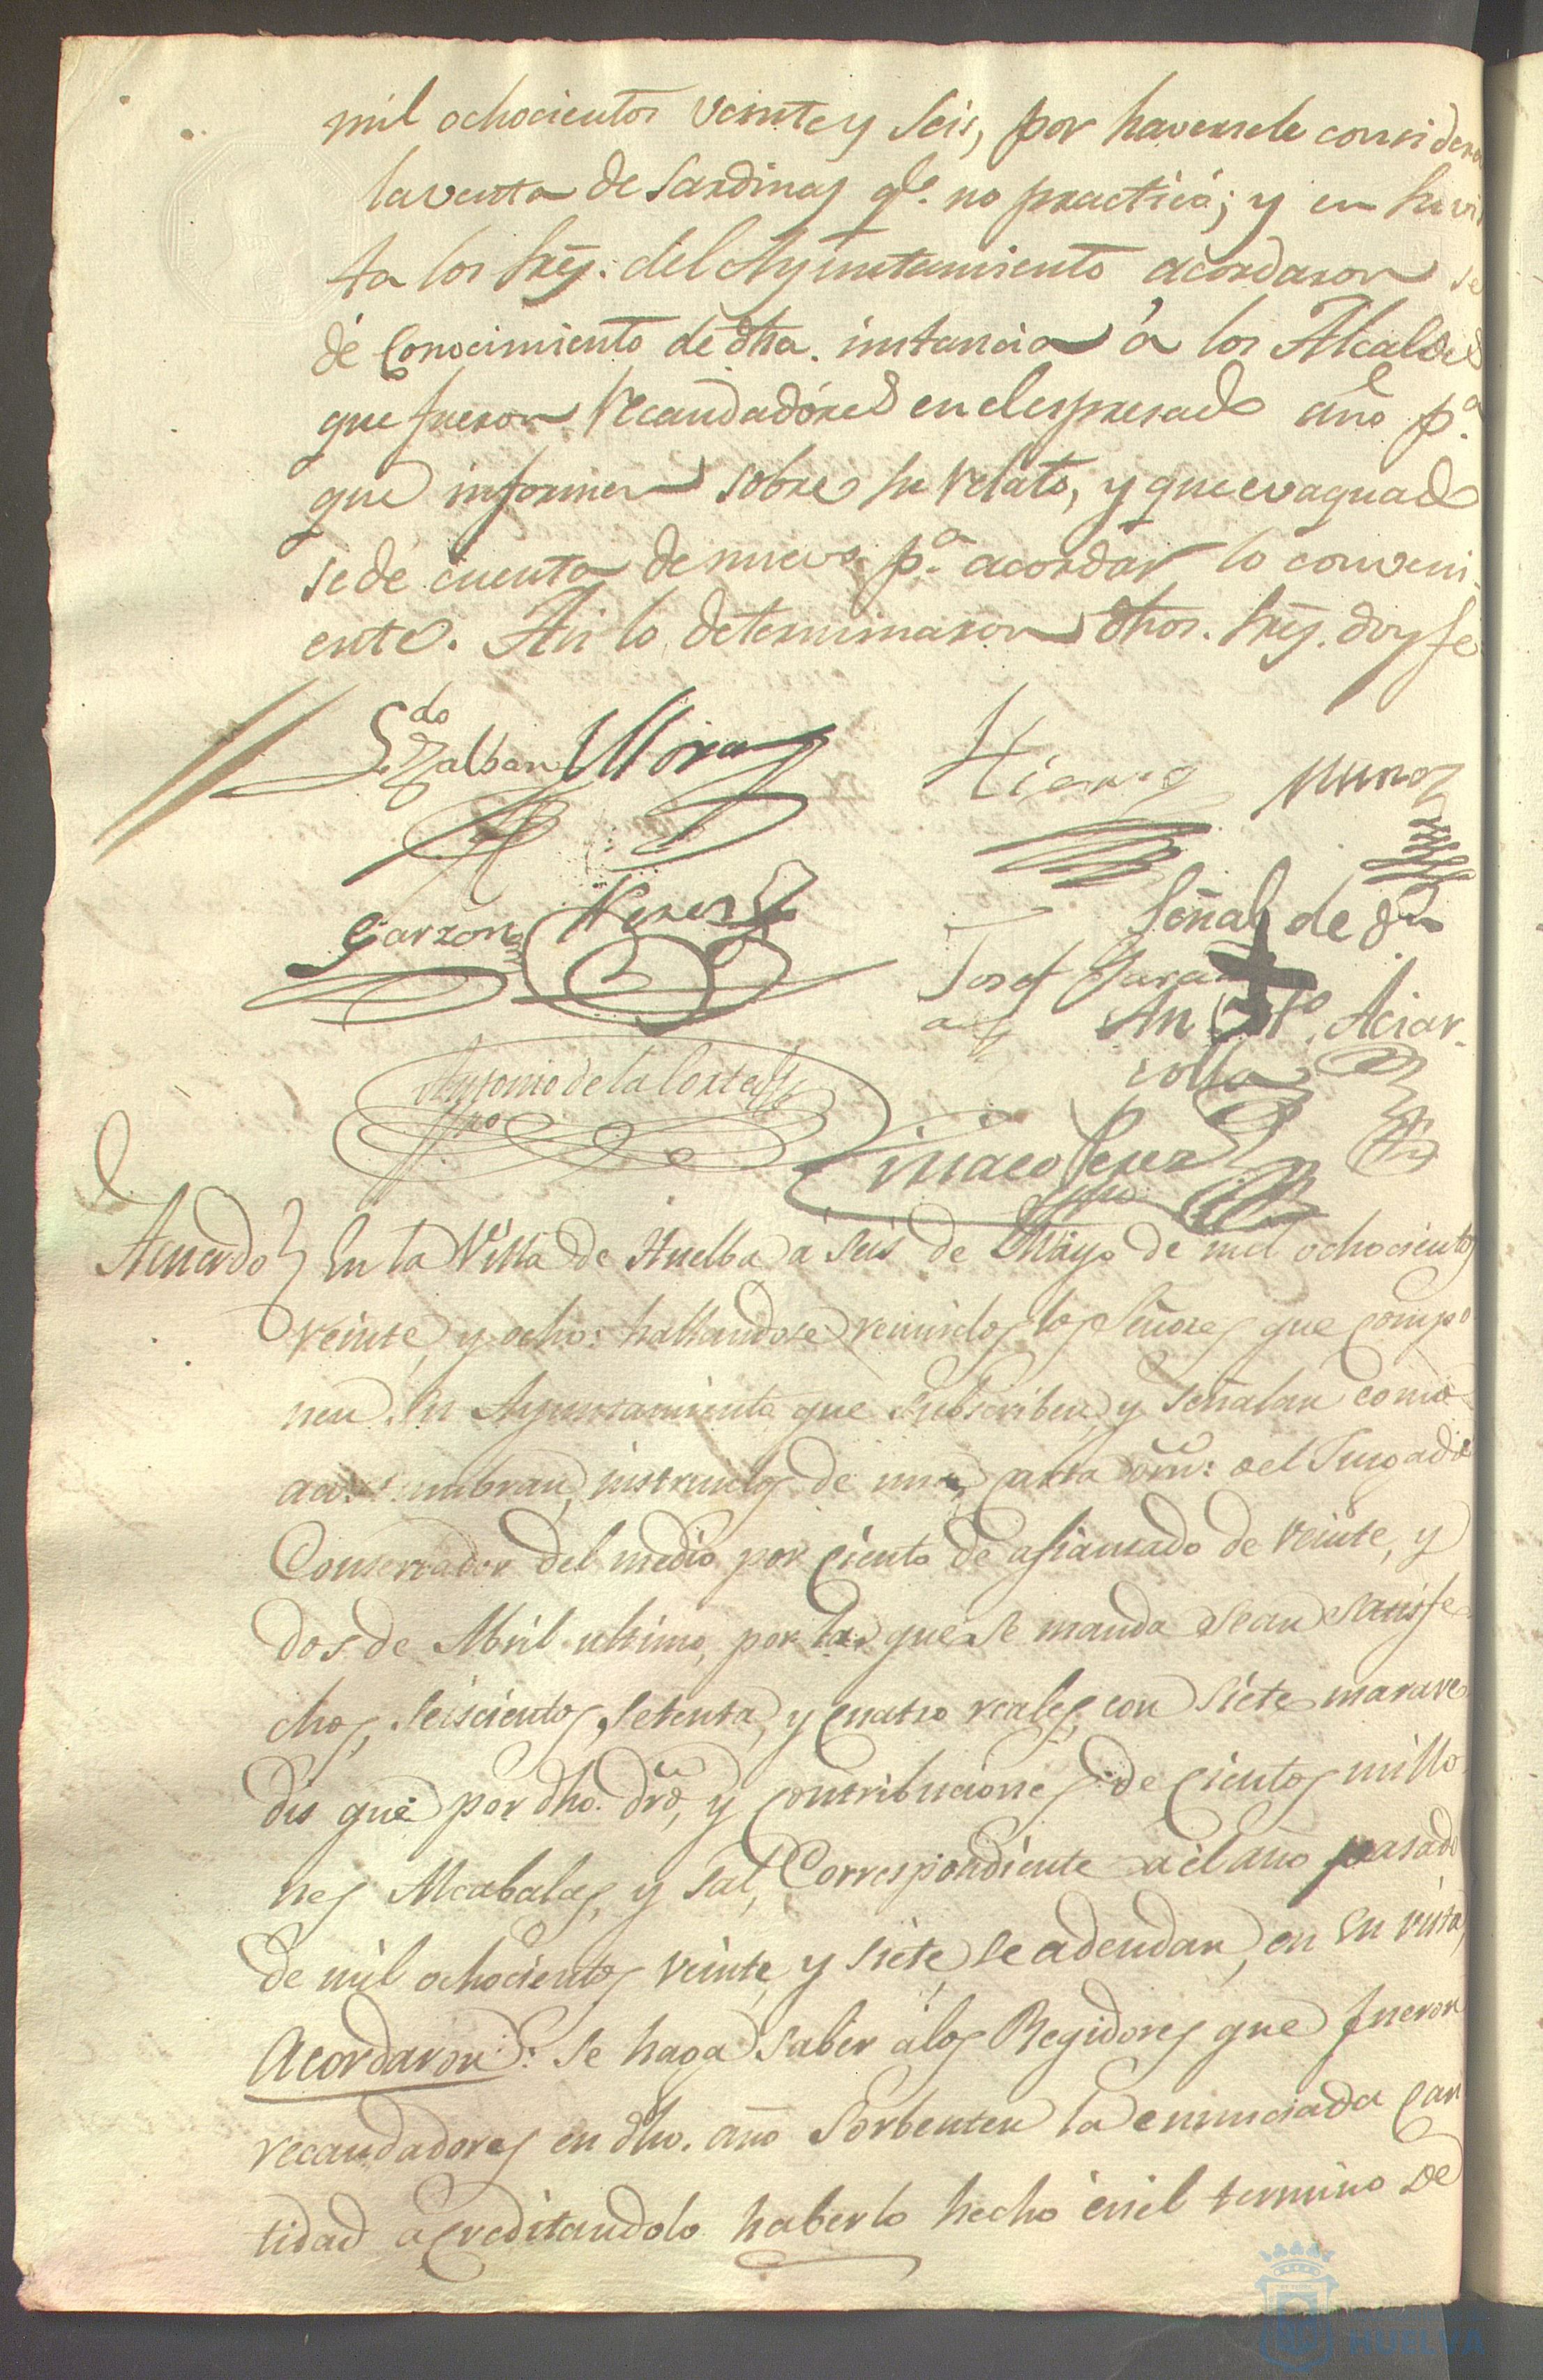 mil ochocientos veinte y seis, por haversele considera
la venta de sardinas qe. no practicó; y en su vis
ta los Sres. del Ayuntamiento acordaron se
dé conocimiento de dha. instancia á los Alcaldes
que fueron recaudadóres en el espresado año pa.
que informen sobre su relato, y que evaquado
se dé cuenta de nuevo pa. acordar lo conveni-
ente. Asi lo determinaron dhos. Sres. doy fe
Ldo
Zalban Mora Hierro Muñoz
Garzon Perez Señal de
Josef Garcia
Aciar-
Antonio de la Corte
Ciriaco Perez
Acuerdo En la Villa de Huelba a seis de Mayo de mil ochocientos
veinte, y ocho: hallandose reunidos los Señores que compo
nen su Ayuntamiento que subscriben, y señalan como
acostumbran, instruidos de una carta orn: del Jusgado
Conservador del medio por ciento de afianzado de veinte, y
dos de Abril ultimo, por la que se manda sean satisfe
chos, seiscientos, setenta, y quatro reales, con siete marave
dis que por dho. dro, y contribuciones de cientos millo
nes Alcabalas, y sal, Correspondiente a él año pasado
de mil ochocientos veinte, y siete, se adeudan, en su vista,
Acordaron: se haga saber a los Regidores que fueron
recaudadores en dho. año Sorbenten la enunciada can
tidad acreditandolo haberlo hecho en el termino de
HUELVA